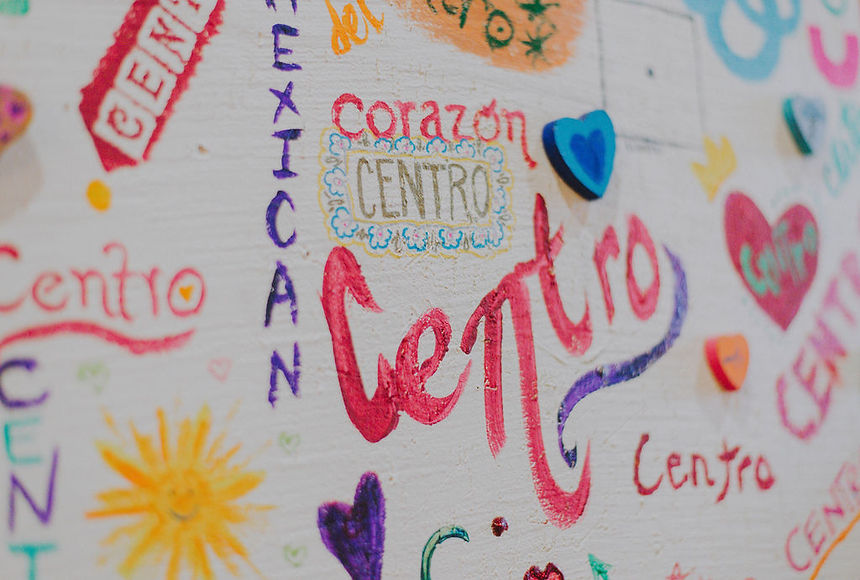 CENT
MEXICAN
del
Corazón
CENTRO
Centro
Centro
CENT
Centro
Centro
CENTR
CENTRO